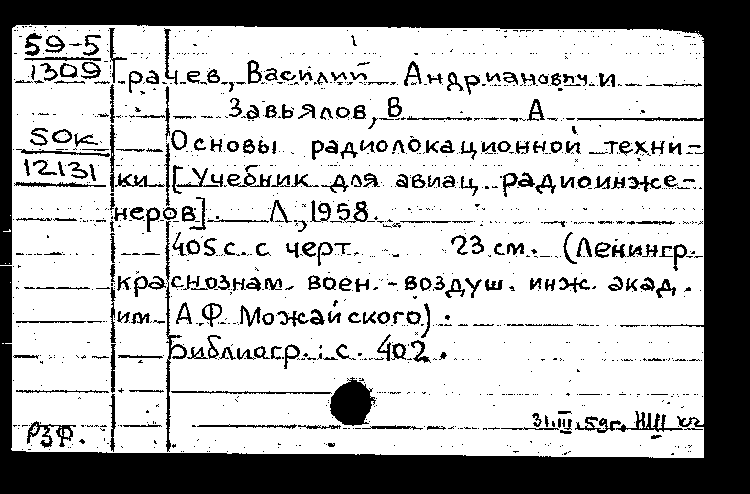 59-5
1309
Грачев, Василий Андрианович и
Завьялов, В А
50к
12131
Основы радиолокационной техни-
ки [Учебник для авиац. радиоинже-
неров]. Л., 1958.
405 с. с черт. 23 см. (Ленингр.
краснознам. воен.-воздуш. инж. акад.
им. А.Ф. Можайского).
Библиогр.: с. 402.
31.III.59г.
РЗФ.